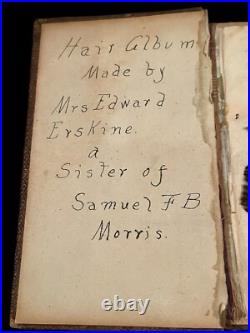 Hair Album
Made by
Mrs Edward
Erskine.
a
Sister of
Samuel F B
Morris.